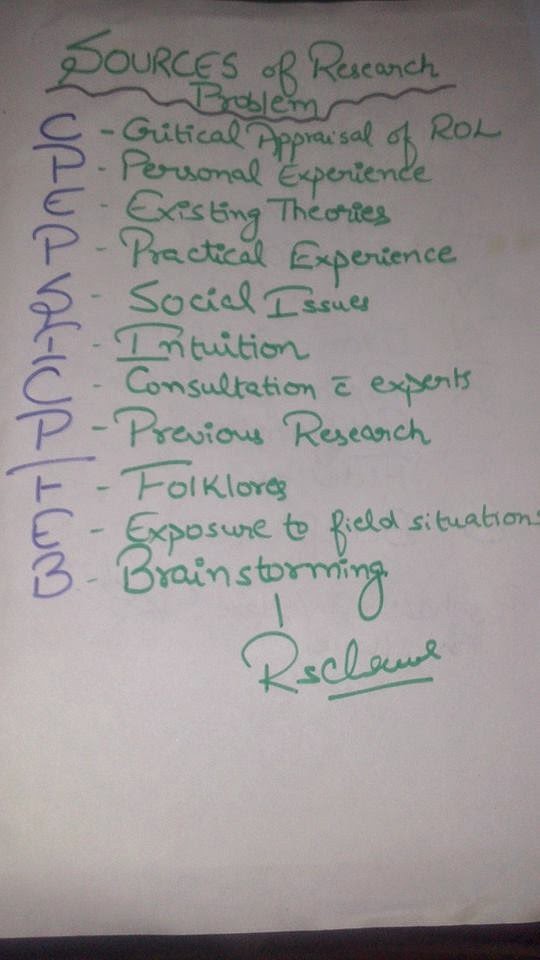 SOURCES of Research
Problem
C - Critical Appraisal of ROL
P - Personal Experience
E - Existing Theories
P - Practical Experience
S - Social Issues
I - Intuition
C - Consultation c̄ experts
P - Previous Research
F - Folklores
E - Exposure to field situations
B - Brainstorming